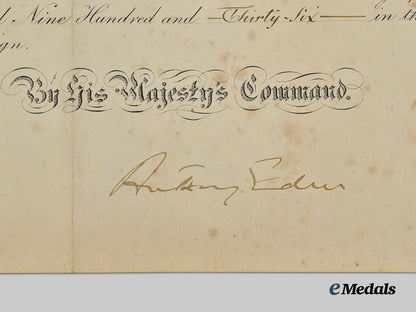 Nine Hundred and Thirty-Six in
By His Majesty's Command.
Anthony Eden
eMedals